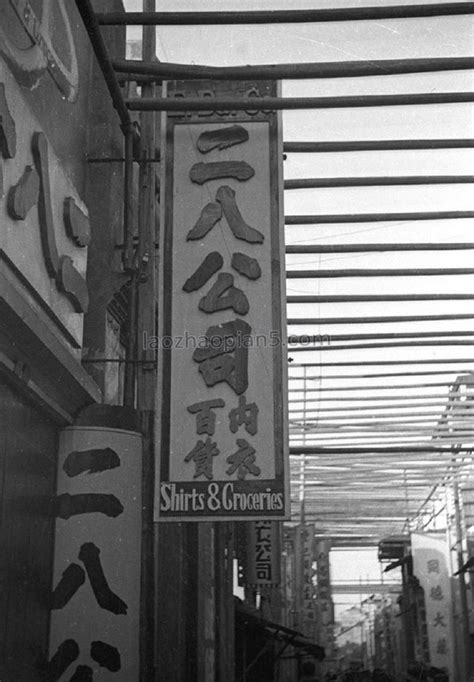 二八公司
內衣
百貨
Shirts & Groceries
二八公
衣公司
laozhaopian5.com